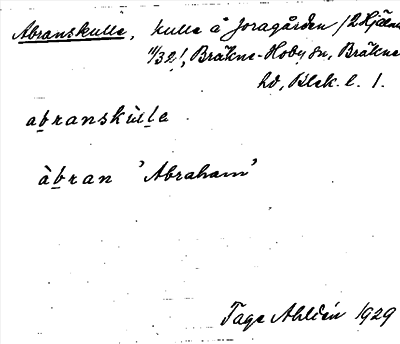 Abranskulle, kulle å Joragården /2 Hjälm
11/32/, Bräkne-Hoby sn, Bräkne
hd, Blek. l. 1.
abranskùlle
àbran 'Abraham'
Tage Ahldén 1929